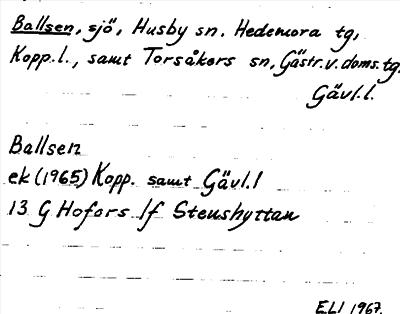 Ballsen, sjö, Husby sn. Hedemora tg,
Kopp.l., samt Torsåkers sn, Gästr.v.doms.tg.
Gävl.l.
Ballsen
ek (1965) Kopp. samt Gävl.l
13 G Hofors 1f Stenshyttan
ELI 1967.